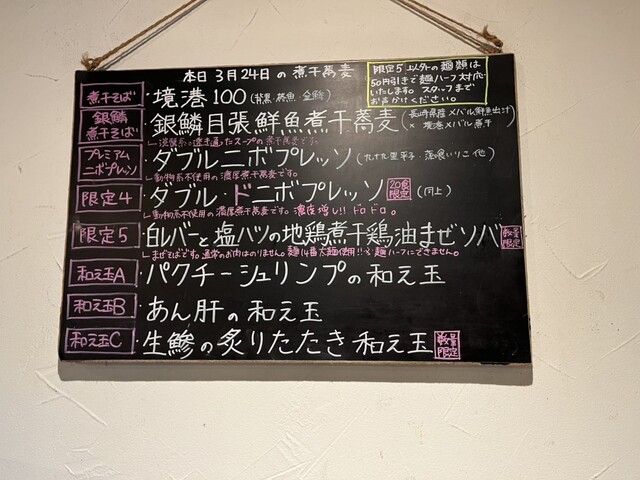 本日 3月24日の煮干蕎麦
限定5以外の麺類は
50円引きで麺ハーフ対応
いたします。スタッフまで
お声かけください。
煮干そば 境港100
銀鱗煮干そば 銀鱗目張鮮魚煮干蕎麦
(長崎県産×メバル鮮魚出汁
×境港×メバル煮干)
淡麗系。透き通ったスープの煮干蕎麦です。
プレミアムニボプレッソ ダブルニボプレッソ
動物系不使用の濃厚煮干蕎麦です。
限定4 ダブル・ドニボプレッソ 20食限定 (同上)
動物系不使用の濃厚煮干蕎麦です。濃度増し!!ドロドロ。
限定5 白レバーと塩ハツの地鶏煮干鶏油まぜソバ 数量限定
まぜそばです。通常のお肉はのりません。麺14番太麺使用!!※麺ハーフにできません。
和え玉A パクチーシュリンプの和え玉
和え玉B あん肝の和え玉
和え玉C 生鯵の炙りたたき和え玉 数量限定